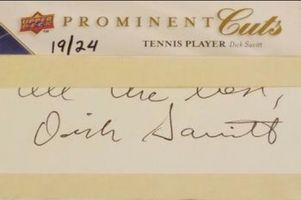 UPPER DECK PROMINENT Cuts
19/24 TENNIS PLAYER Dick Savitt
all the best,
Dick Savitt